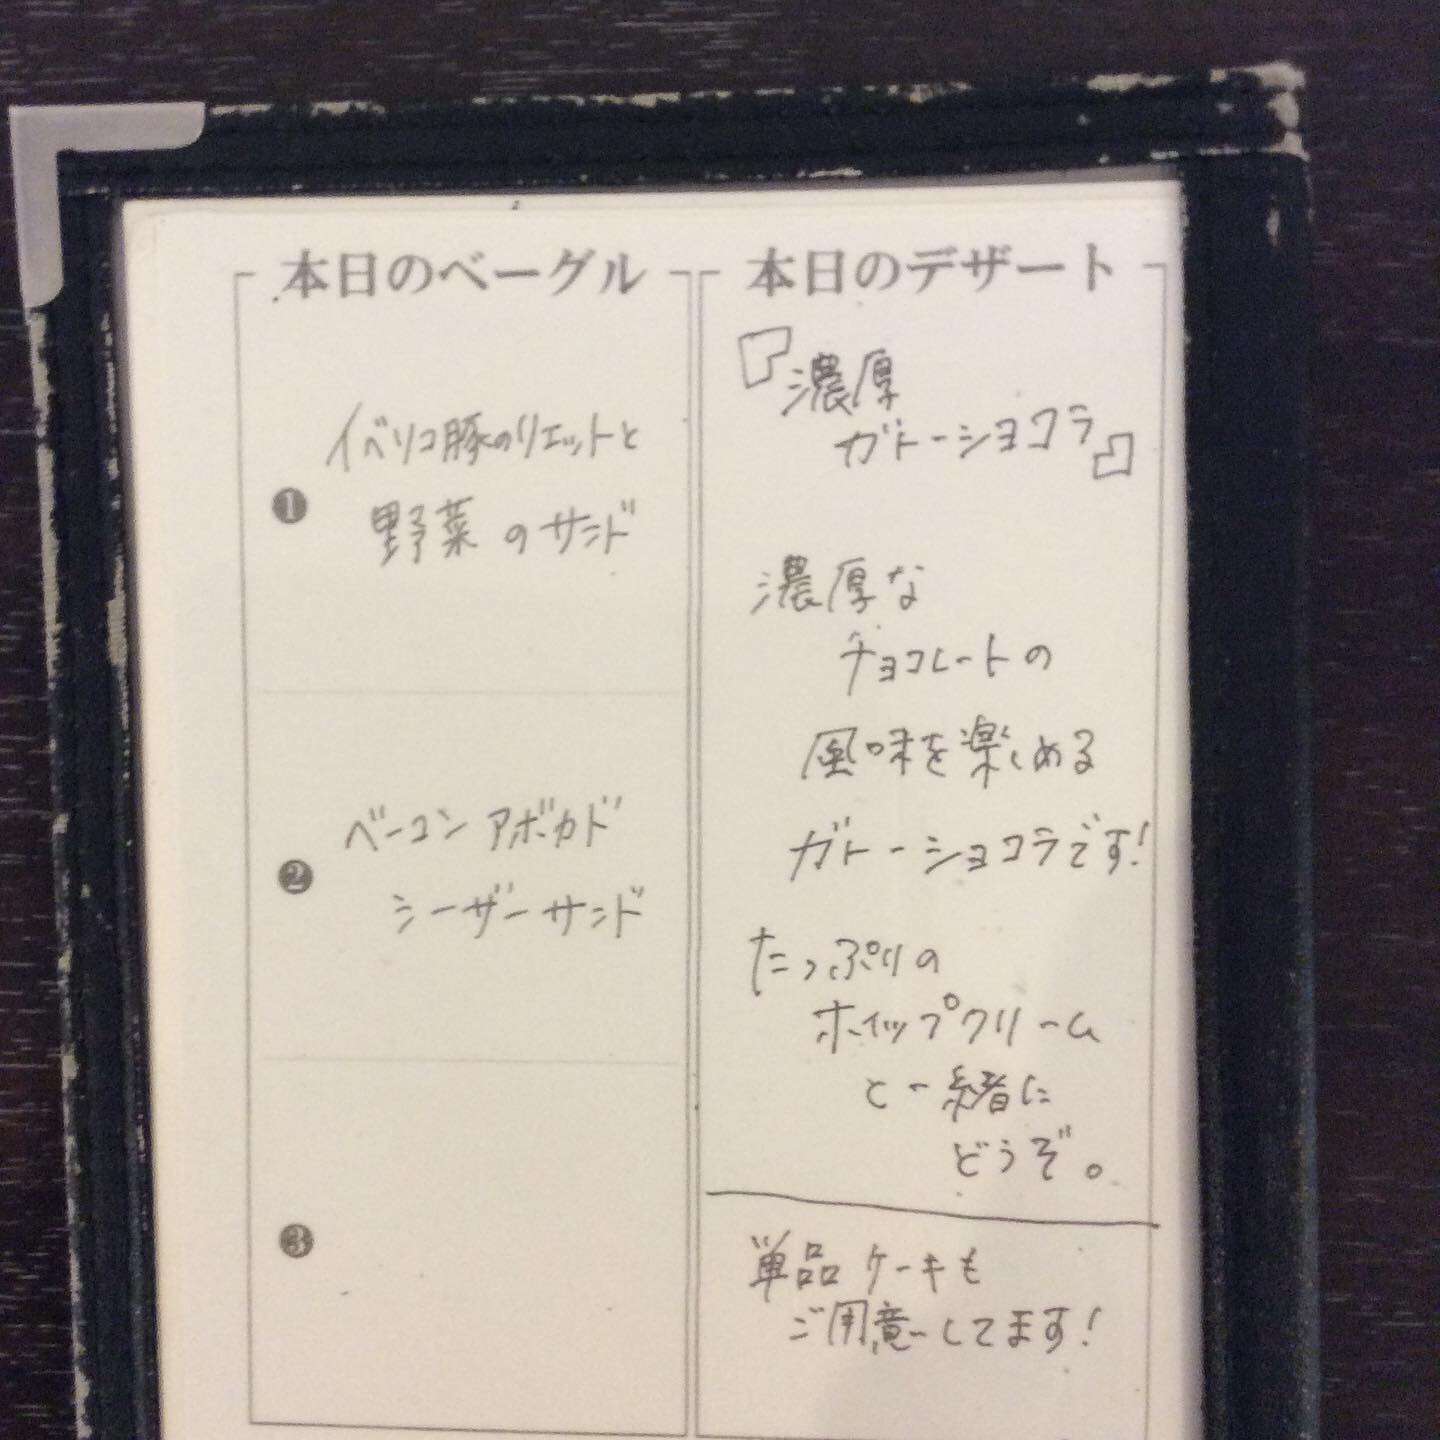 本日のベーグル
❶
イベリコ豚のリエットと
野菜のサンド
❷
ベーコンアボカド
シーザーサンド
❸
本日のデザート
『濃厚
ガトーショコラ』
濃厚な
チョコレートの
風味を楽しめる
ガトーショコラです!
たっぷりの
ホイップクリーム
と一緒に
どうぞ。
単品ケーキも
ご用意してます!